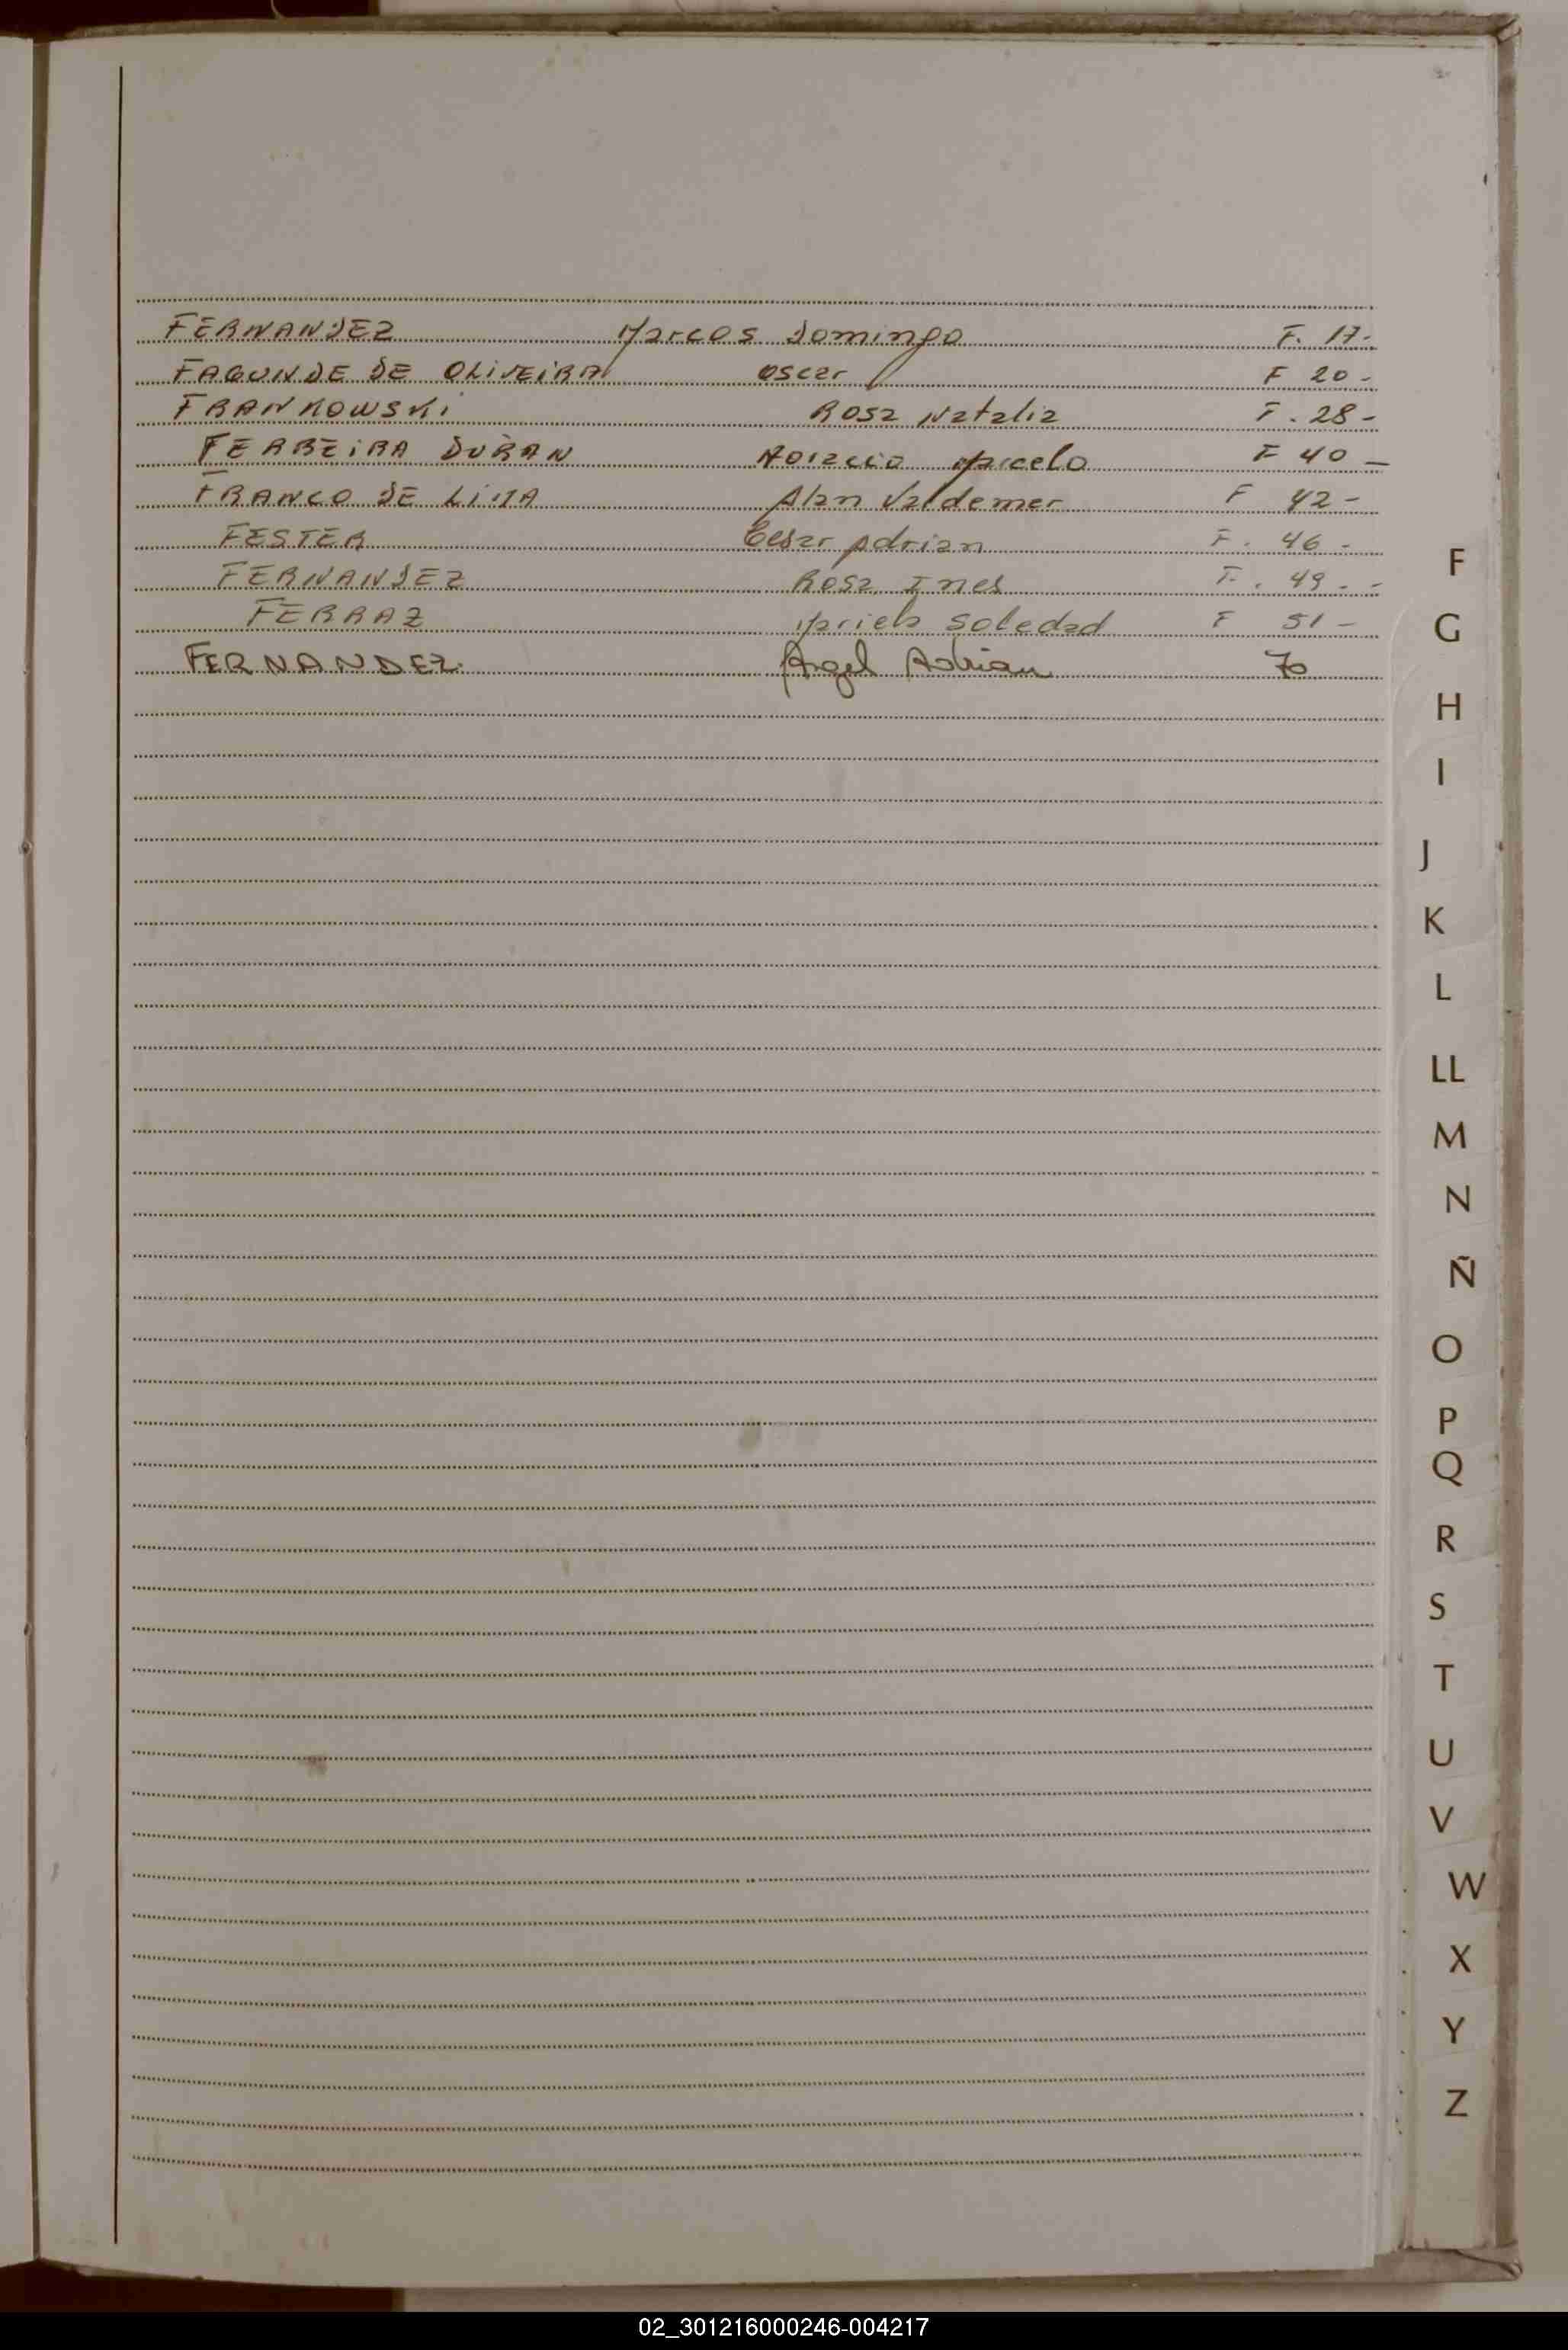 FERNANDEZ Marcos Domingo F. 17-
FAGUNDE DE OLIVEIRA Oscar F 20-
FRANKOWSKi Rosa Natalia F. 28-
FERREiRA DURAN Horacio Marcelo F 40 -
FRANCO DE LiMA Alan Valdemar F 42-
FESTER Cesar Adrian F. 46 -
FERNANDEZ Rosa Ines F. 49 - -
FERRAZ Mariela Soledad F 51 -
FERNANDEZ. Angel Adrian 70
F
G
H
I
J
K
L
LL
M
N
Ñ
O
P
Q
R
S
T
U
V
W
X
Y
Z
02_301216000246-004217